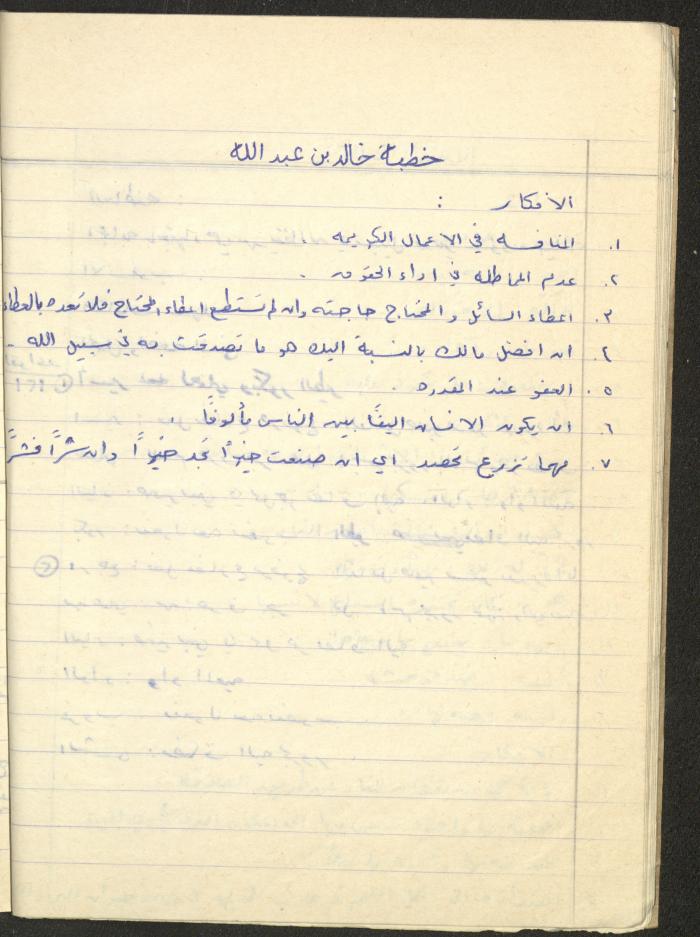 خطبة خالد بن عبد الله
الافكار :
١. المنافسه في الاعمال الكريمه .
٢. عدم المماطله في اداء الحقوق .
٣. اعطاء السائل والمحتاج حاجته وان لم تستطع اعطاء المحتاج فلا تعده بالعطاء
٤. ان افضل مالك بالنسبة اليك هو ما تصدقت به في سبيل الله
٥. العفو عند المقدره .
٦. ان يكون الانسان اليفًا بين الناس مألوفًا .
٧. مهما تزرع تحصد اي ان صنعت خيرًا تجد خيرًا وان شرًا فشرًا